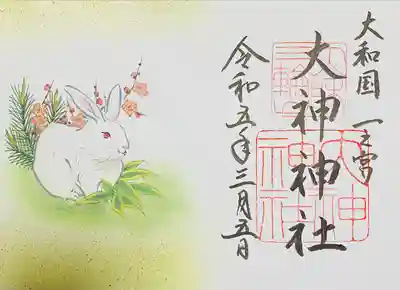 大和国 一之宮
大神神社
令和五年三月五日